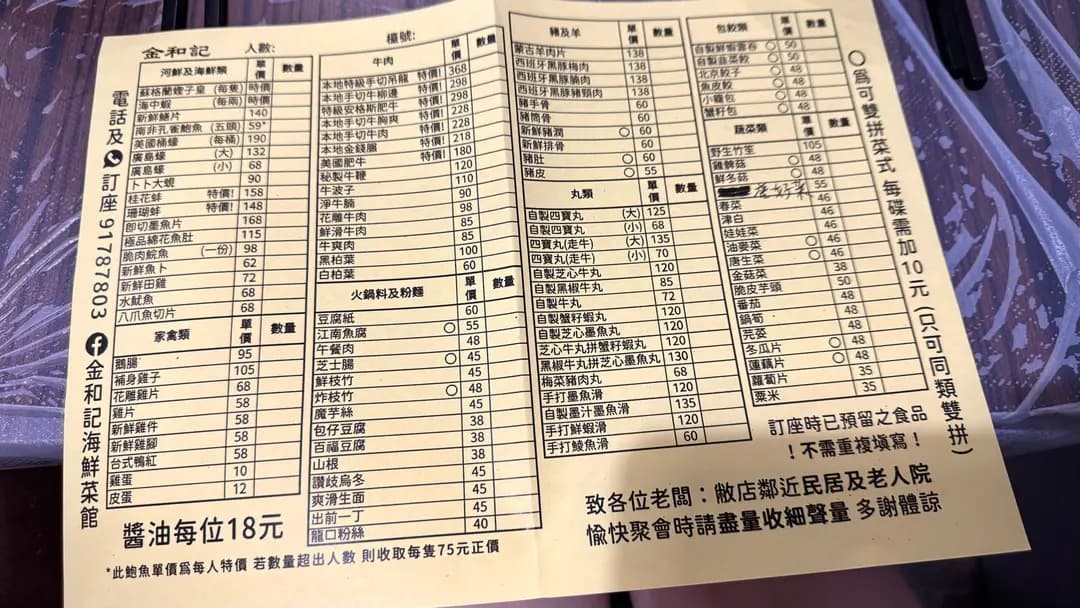 金和記 人數: 檯號:
電話及訂座 91787803 金和記海鮮菜館
河鮮及海鮮類 單價 數量
蘇格蘭蟶子皇 (每隻) 時價
海中蝦 (每兩) 時價
新鮮鱔片 140
南非孔雀鮑魚 (五頭) 59*
美國桶蠔 (每桶) 190
廣島蠔 (大) 132
廣島蠔 (小) 68
卜卜大蜆 90
桂花蚌 特價! 158
珊瑚蚌 特價! 148
即切墨魚片 168
極品綿花魚肚 115
脆肉鯇魚 (一份) 98
新鮮魚卜 62
新鮮田雞 72
水魷魚 68
八爪魚切片 68
家禽類 單價 數量
鵝腸 95
補身雞子 105
花雕雞片 68
雞片 58
新鮮雞件 58
新鮮雞腳 58
台式鴨紅 58
雞蛋 10
皮蛋 12
醬油每位18元
*此鮑魚單價為每人特價 若數量超出人數 則收取每隻75元正價
牛肉 單價 數量
本地特級手切吊龍 特價! 368
本地手切牛柳邊 特價! 298
特級安格斯肥牛 特價! 298
本地手切牛胸爽 特價! 228
本地手切牛肉 特價! 218
本地金錢𦟌 特價! 228
美國肥牛 180
秘製牛鞭 120
牛波子 110
淨牛腩 90
花雕牛肉 98
鮮滑牛肉 85
牛爽肉 85
黑柏葉 100
白柏葉 60
火鍋料及粉麵 單價 數量
豆腐紙 60
江南魚腐 ○ 55
午餐肉 48
芝士腸 ○ 45
鮮枝竹 45
炸枝竹 ○ 48
魔芋絲 45
包仔豆腐 38
百福豆腐 38
山根 38
讚岐烏冬 45
爽滑生面 45
出前一丁 45
龍口粉絲 40
豬及羊 單價 數量
蒙古羊肉片 138
西班牙黑豚梅肉 138
西班牙黑豚腩肉 138
西班牙黑豚頸肉 138
豬手骨 60
豬筒骨 60
新鮮豬潤 ○ 60
新鮮排骨 60
豬肚 ○ 60
豬皮 ○ 55
丸類 單價 數量
自製四寶丸 (大) 125
自製四寶丸 (小) 68
四寶丸(走牛) (大) 135
四寶丸(走牛) (小) 70
自製芝心牛丸 120
自製黑椒牛丸 85
自製牛丸 72
自製蟹籽蝦丸 120
自製芝心墨魚丸 120
芝心牛丸拼蟹籽蝦丸 120
黑椒牛丸拼芝心墨魚丸 130
梅菜豬肉丸 68
手打墨魚滑 120
自製墨汁墨魚滑 135
手打鮮蝦滑 120
手打鯪魚滑 60
包餃類 單價 數量
自製鮮蝦雲吞 ○ 50
自製韮菜餃 ○ 50
北京餃子 ○ 48
魚皮餃 ○ 48
小籠包 ○ 48
蟹籽包 ○ 48
蔬菜類 單價 數量
野生竹笙 105
雞髀菇 ○ 48
鮮冬菇 ○ 48
55
春菜 46
津白 46
娃娃菜 46
油麥菜 ○ 46
唐生菜 ○ 46
金菇菜 38
脆皮芋頭 50
番茄 48
鍋筍 48
芫荽 48
冬瓜片 ○ 48
蓮藕片 ○ 48
蘿蔔片 35
粟米 35
○為可雙拼菜式 每碟需加10元 (只可同類雙拼)
訂座時已預留之食品
!不需重複填寫!
致各位老闆:敝店鄰近民居及老人院
愉快聚會時請盡量收細聲量 多謝體諒